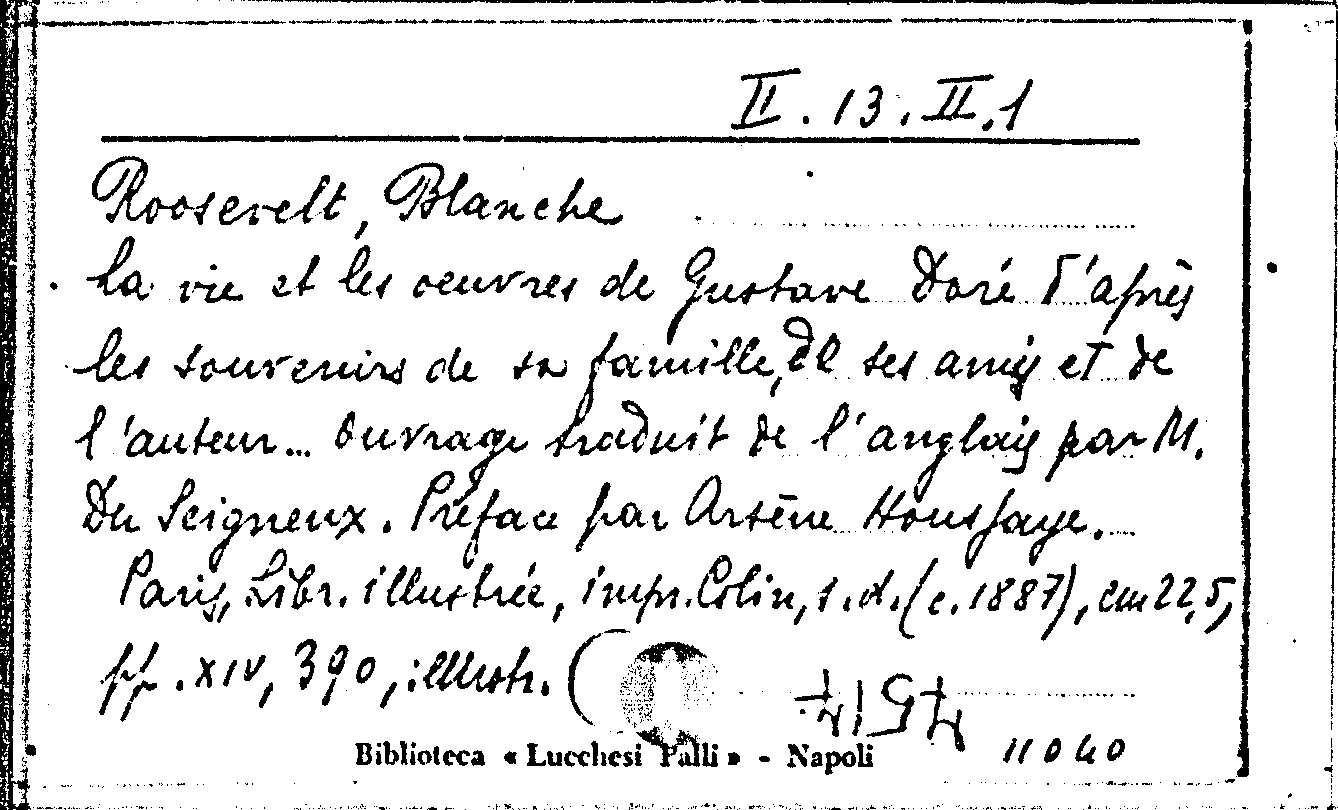 II.13.II.1
Roosevelt, Blanche
La vie et les oeuvres de Gustave Doré d'après
les souvenirs de sa famille, de ses amis et de
l'auteur... Ouvrage traduit de l'anglais par M.
Du Seigneux. Préface par Arsène Houssaye.
Paris, Libr. illustrée, impr. Colin, s.d. (c. 1887), cm 22,5,
pp. XIV, 390, illustr. (
11040
Biblioteca « Lucchesi Palli » - Napoli